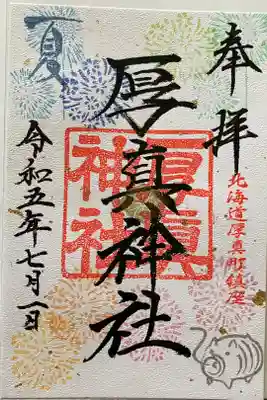 奉拝
北海道厚真町鎮座
厚真神社
厚真神社
夏
令和五年七月一日